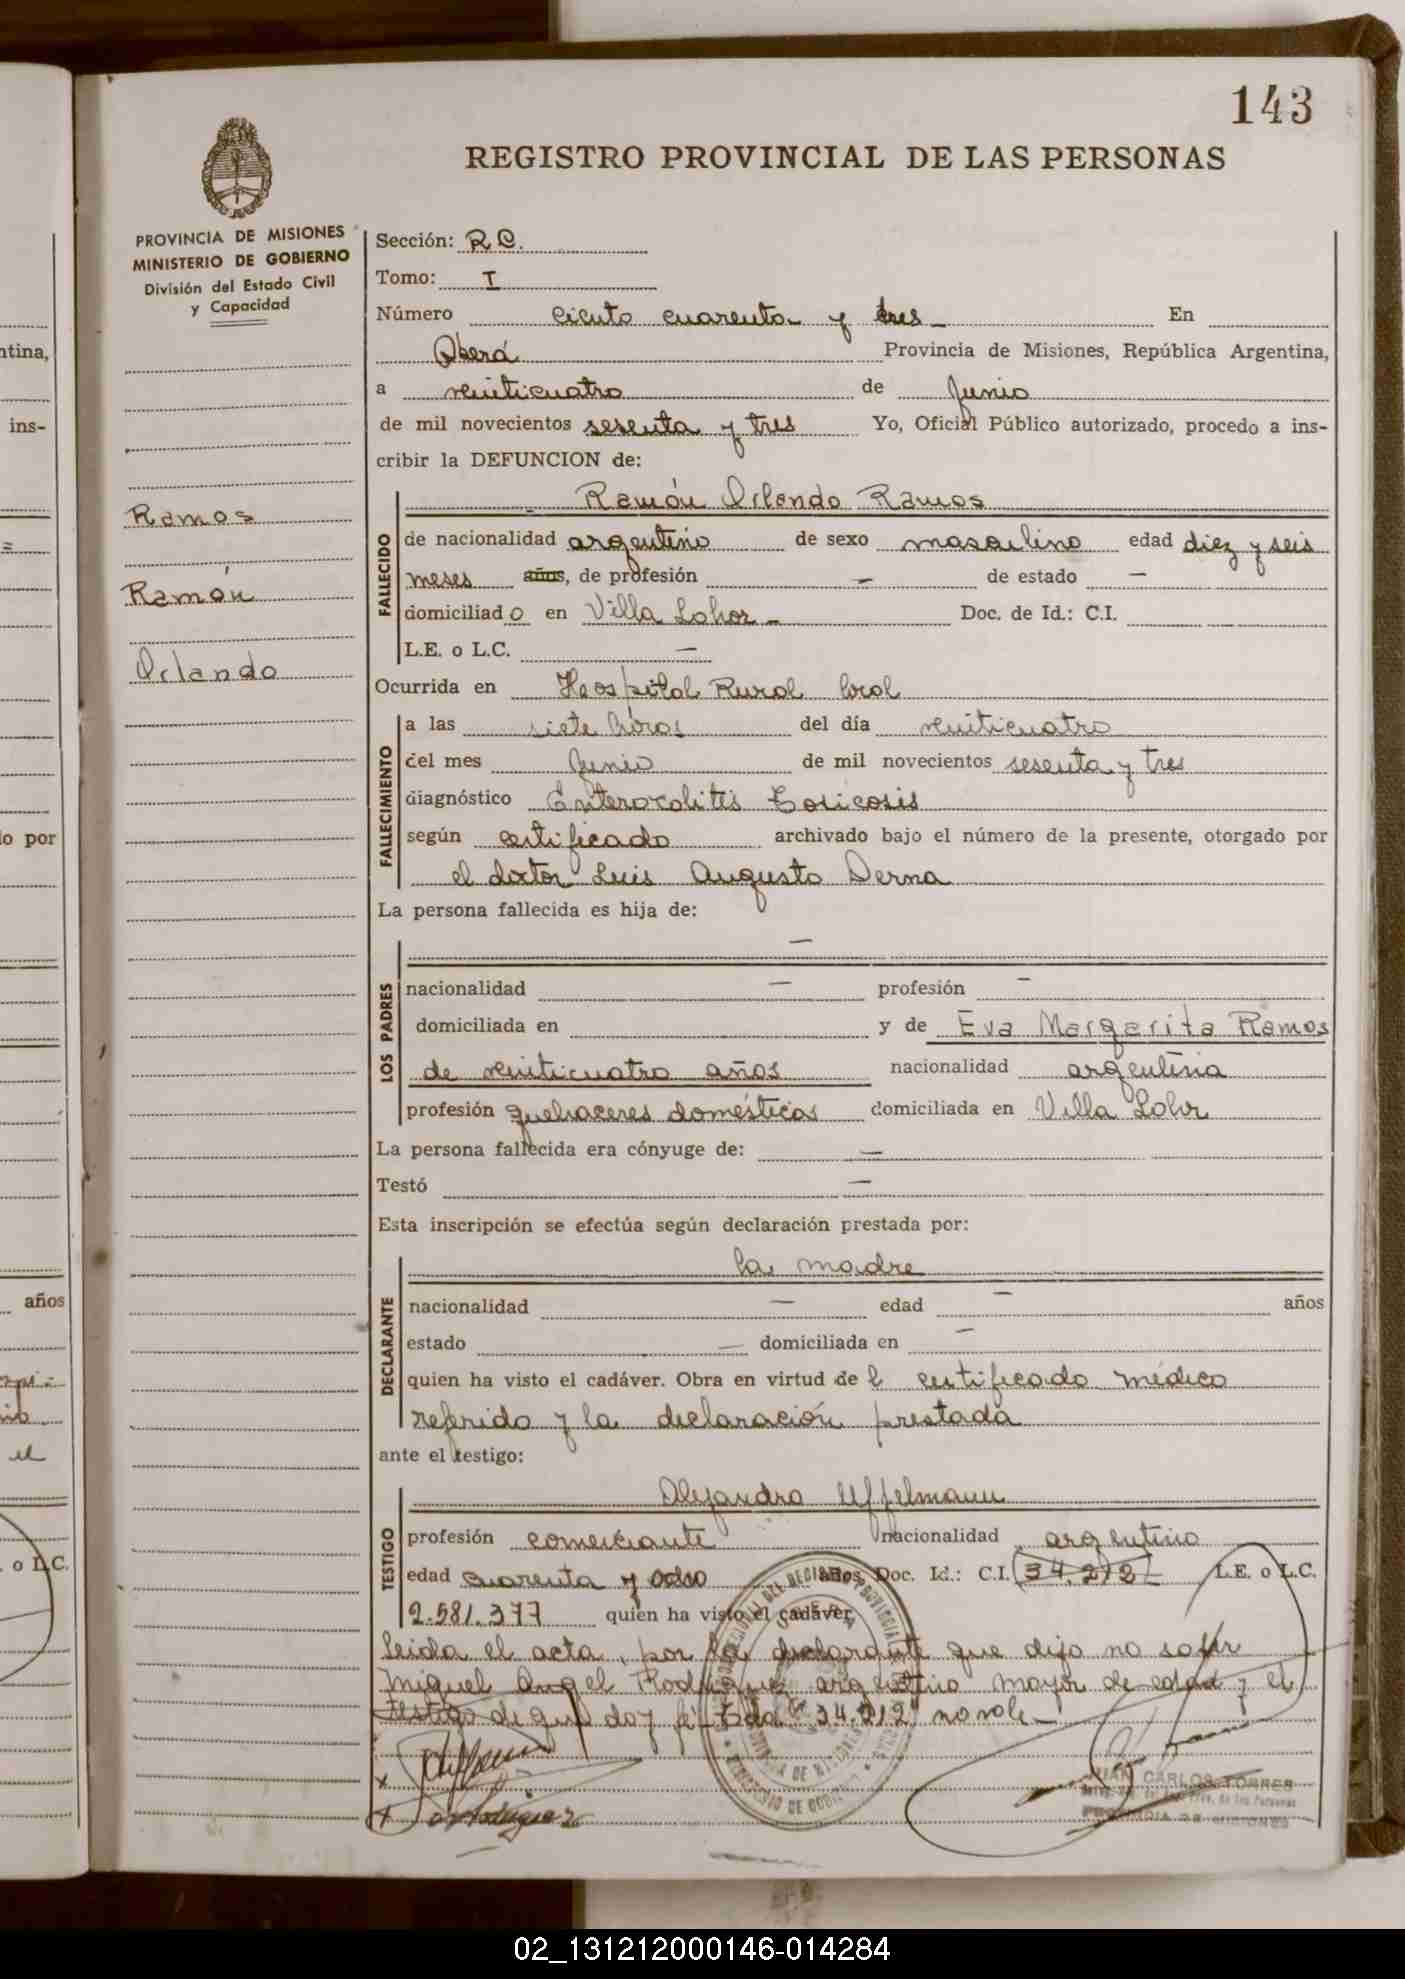 143
REGISTRO PROVINCIAL DE LAS PERSONAS
PROVINCIA DE MISIONES
MINISTERIO DE GOBIERNO
División del Estado Civil
y Capacidad
Ramos
Ramón
Orlando
Sección: R C.
Tomo: I
Número ciento cuarenta y tres En
Oberá Provincia de Misiones, República Argentina,
a veinticuatro de Junio
de mil novecientos sesenta y tres Yo, Oficial Público autorizado, procedo a ins-
cribir la DEFUNCION de:
FALLECIDO
Ramón Orlando Ramos
de nacionalidad argentino de sexo masculino edad diez y seis
meses años, de profesión — de estado —
domiciliado en Villa Lohor - Doc. de Id.: C.I.
L.E. o L.C. —
Ocurrida en Hospital Rural local
FALLECIMIENTO
a las siete horas del día veinticuatro
del mes Junio de mil novecientos sesenta y tres
diagnóstico Enterocolitis Toxicosis
según certificado archivado bajo el número de la presente, otorgado por
el doctor Luis Augusto Derna
La persona fallecida es hija de:
LOS PADRES
—
nacionalidad — profesión —
domiciliada en y de Eva Margarita Ramos
de veinticuatro años nacionalidad argentina
profesión quehaceres domésticos domiciliada en Villa Lohr
La persona fallecida era cónyuge de: —
Testó —
Esta inscripción se efectúa según declaración prestada por:
DECLARANTE
la madre
nacionalidad — edad — años
estado — domiciliada en —
quien ha visto el cadáver. Obra en virtud del certificado médico
referido y la declaración prestada
ante el testigo:
TESTIGO
Alejandro Uffelmann
profesión comerciante nacionalidad argentino
edad cuarenta y ocho años, Doc. Id.: C.I. 34.212 L.E. o L.C.
2.581.377 quien ha visto el cadáver,
Leida el acta, por la declarante que dijo no saber
Miguel Angel Rodriguez argentino mayor de edad y el
testigo de que doy fé Tda "34.212" no vale-
JUAN CARLOS TORRES
PROVINCIA DE MISIONES
ntina,
ins-
lo por
años
. o L.C.
02_131212000146-014284